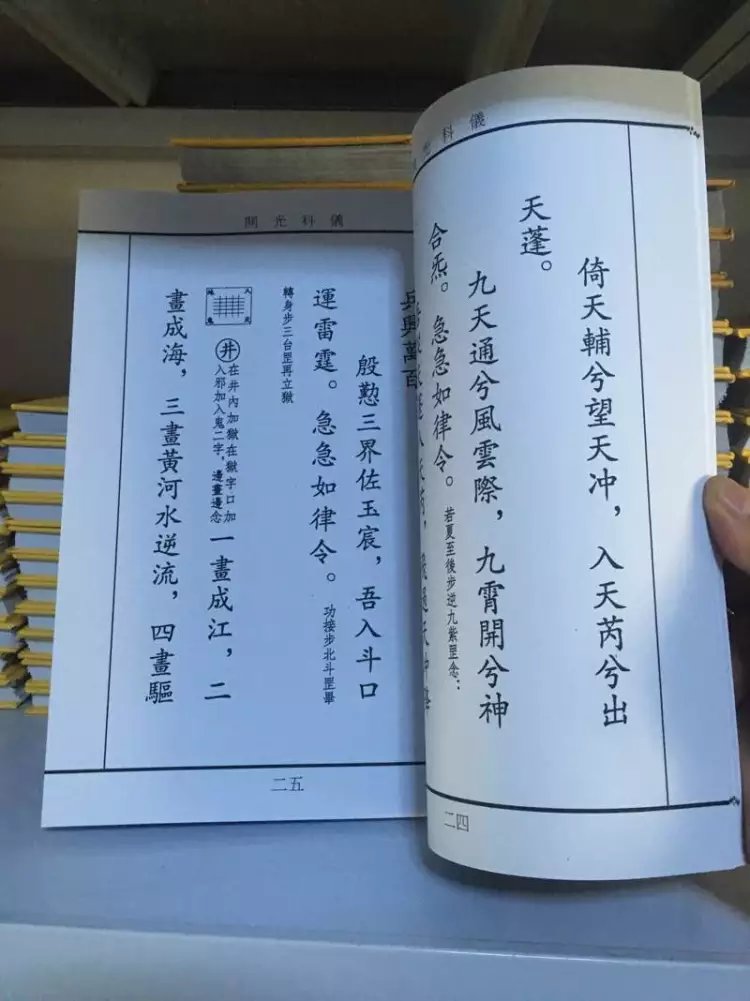 儀科光
倚天輔兮望天冲，入天芮兮出
天蓬。
九天通兮風雲際，九霄開兮神
合炁。急急如律令。若夏至後步逆九紫罡念：
二四
儀科光開
兵興萬百
殷勤三界佐玉宸，吾入斗口
運雷霆。急急如律令。功接步北斗罡畢
轉身步三台罡再立獄
井
在井內加獄在獄字口加
入邪加入鬼二字，邊畫邊念
一畫成江，二
畫成海，三畫黃河水逆流，四畫驅
二五